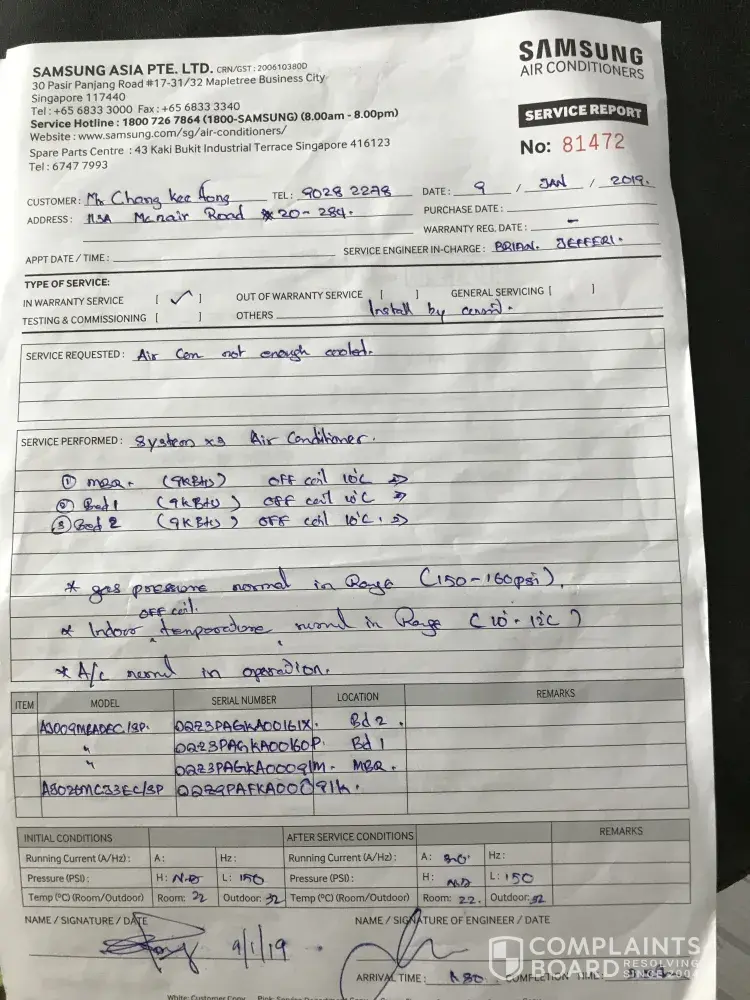 SAMSUNG ASIA PTE. LTD. CRN/GST : 200610380D
30 Pasir Panjang Road #17-31/32 Mapletree Business City
Singapore 117440
Tel : +65 6833 3000 Fax : +65 6833 3340
Service Hotline : 1800 726 7864 (1800-SAMSUNG) (8.00am - 8.00pm)
Website : www.samsung.com/sg/air-conditioners/
Spare Parts Centre : 43 Kaki Bukit Industrial Terrace Singapore 416123
Tel : 6747 7993
SAMSUNG
AIR CONDITIONERS
SERVICE REPORT
No: 81472
CUSTOMER: Mr Chong Kee TEL: 9028 2278 DATE: 9 / JAN / 2019.
ADDRESS: 113A Mcnair Road #20-284. PURCHASE DATE:
WARRANTY REG. DATE: -
APPT DATE / TIME: SERVICE ENGINEER IN-CHARGE: BRIAN. JEFFERI.
TYPE OF SERVICE:
IN WARRANTY SERVICE [ ✓ ] OUT OF WARRANTY SERVICE [ ] GENERAL SERVICING [ ]
TESTING & COMMISSIONING [ ] OTHERS Install by
SERVICE REQUESTED: Air Con not enough cooled.
SERVICE PERFORMED: System x3 Air Conditioner.
① MBR. (9KBtu) OFF coil 10°C →
② Bed 1 (9KBtu) OFF coil 10°C →
③ Bed 2 (9KBtu) OFF coil 10°C. →
* gas pressure normal in Range (150-160psi).
OFF coil.
* Indoor temperature normal in Range (10°-12°C)
* A/c normal in operation.
ITEM MODEL SERIAL NUMBER LOCATION REMARKS
AJ009MBADEC/SP. 0QZ3PAGKA00161X. Bd 2.
" 0QZ3PAGKA00160P. Bd 1
" 0QZ3PAGKA00091M. MBR.
INITIAL CONDITIONS AFTER SERVICE CONDITIONS REMARKS
Running Current (A/Hz): A: Hz: Running Current (A/Hz): A: Hz:
Pressure (PSI): H: NA L: 150 Pressure (PSI): H: NA L: 150
Temp (°C) (Room/Outdoor) Room: 22 Outdoor: 32 Temp (°C) (Room/Outdoor) Room: 22. Outdoor: 32
NAME / SIGNATURE / DATE NAME / SIGNATURE OF ENGINEER / DATE
9/1/19
ARRIVAL TIME: COMPLETION TIME:
COMPLAINTS
BOARD RESOLVING SINCE 2004